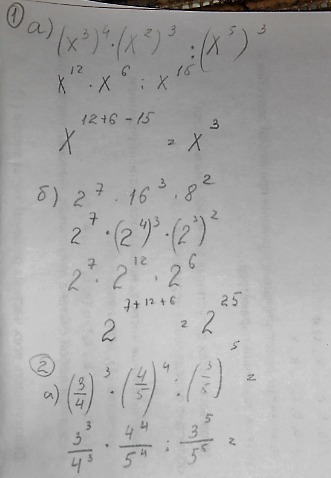 ① а) (x³)⁴ · (x²)³ : (x⁵)³
x¹² · x⁶ : x¹⁵
x¹²⁺⁶⁻¹⁵ = x³
б) 2⁷ · 16³ · 8²
2⁷ · (2⁴)³ · (2³)²
2⁷ · 2¹² · 2⁶
2⁷⁺¹²⁺⁶ = 2²⁵
②
а) (3/4)³ · (4/5)⁴ : (3/5)⁵ =
3³/4³ · 4⁴/5⁴ : 3⁵/5⁵ =